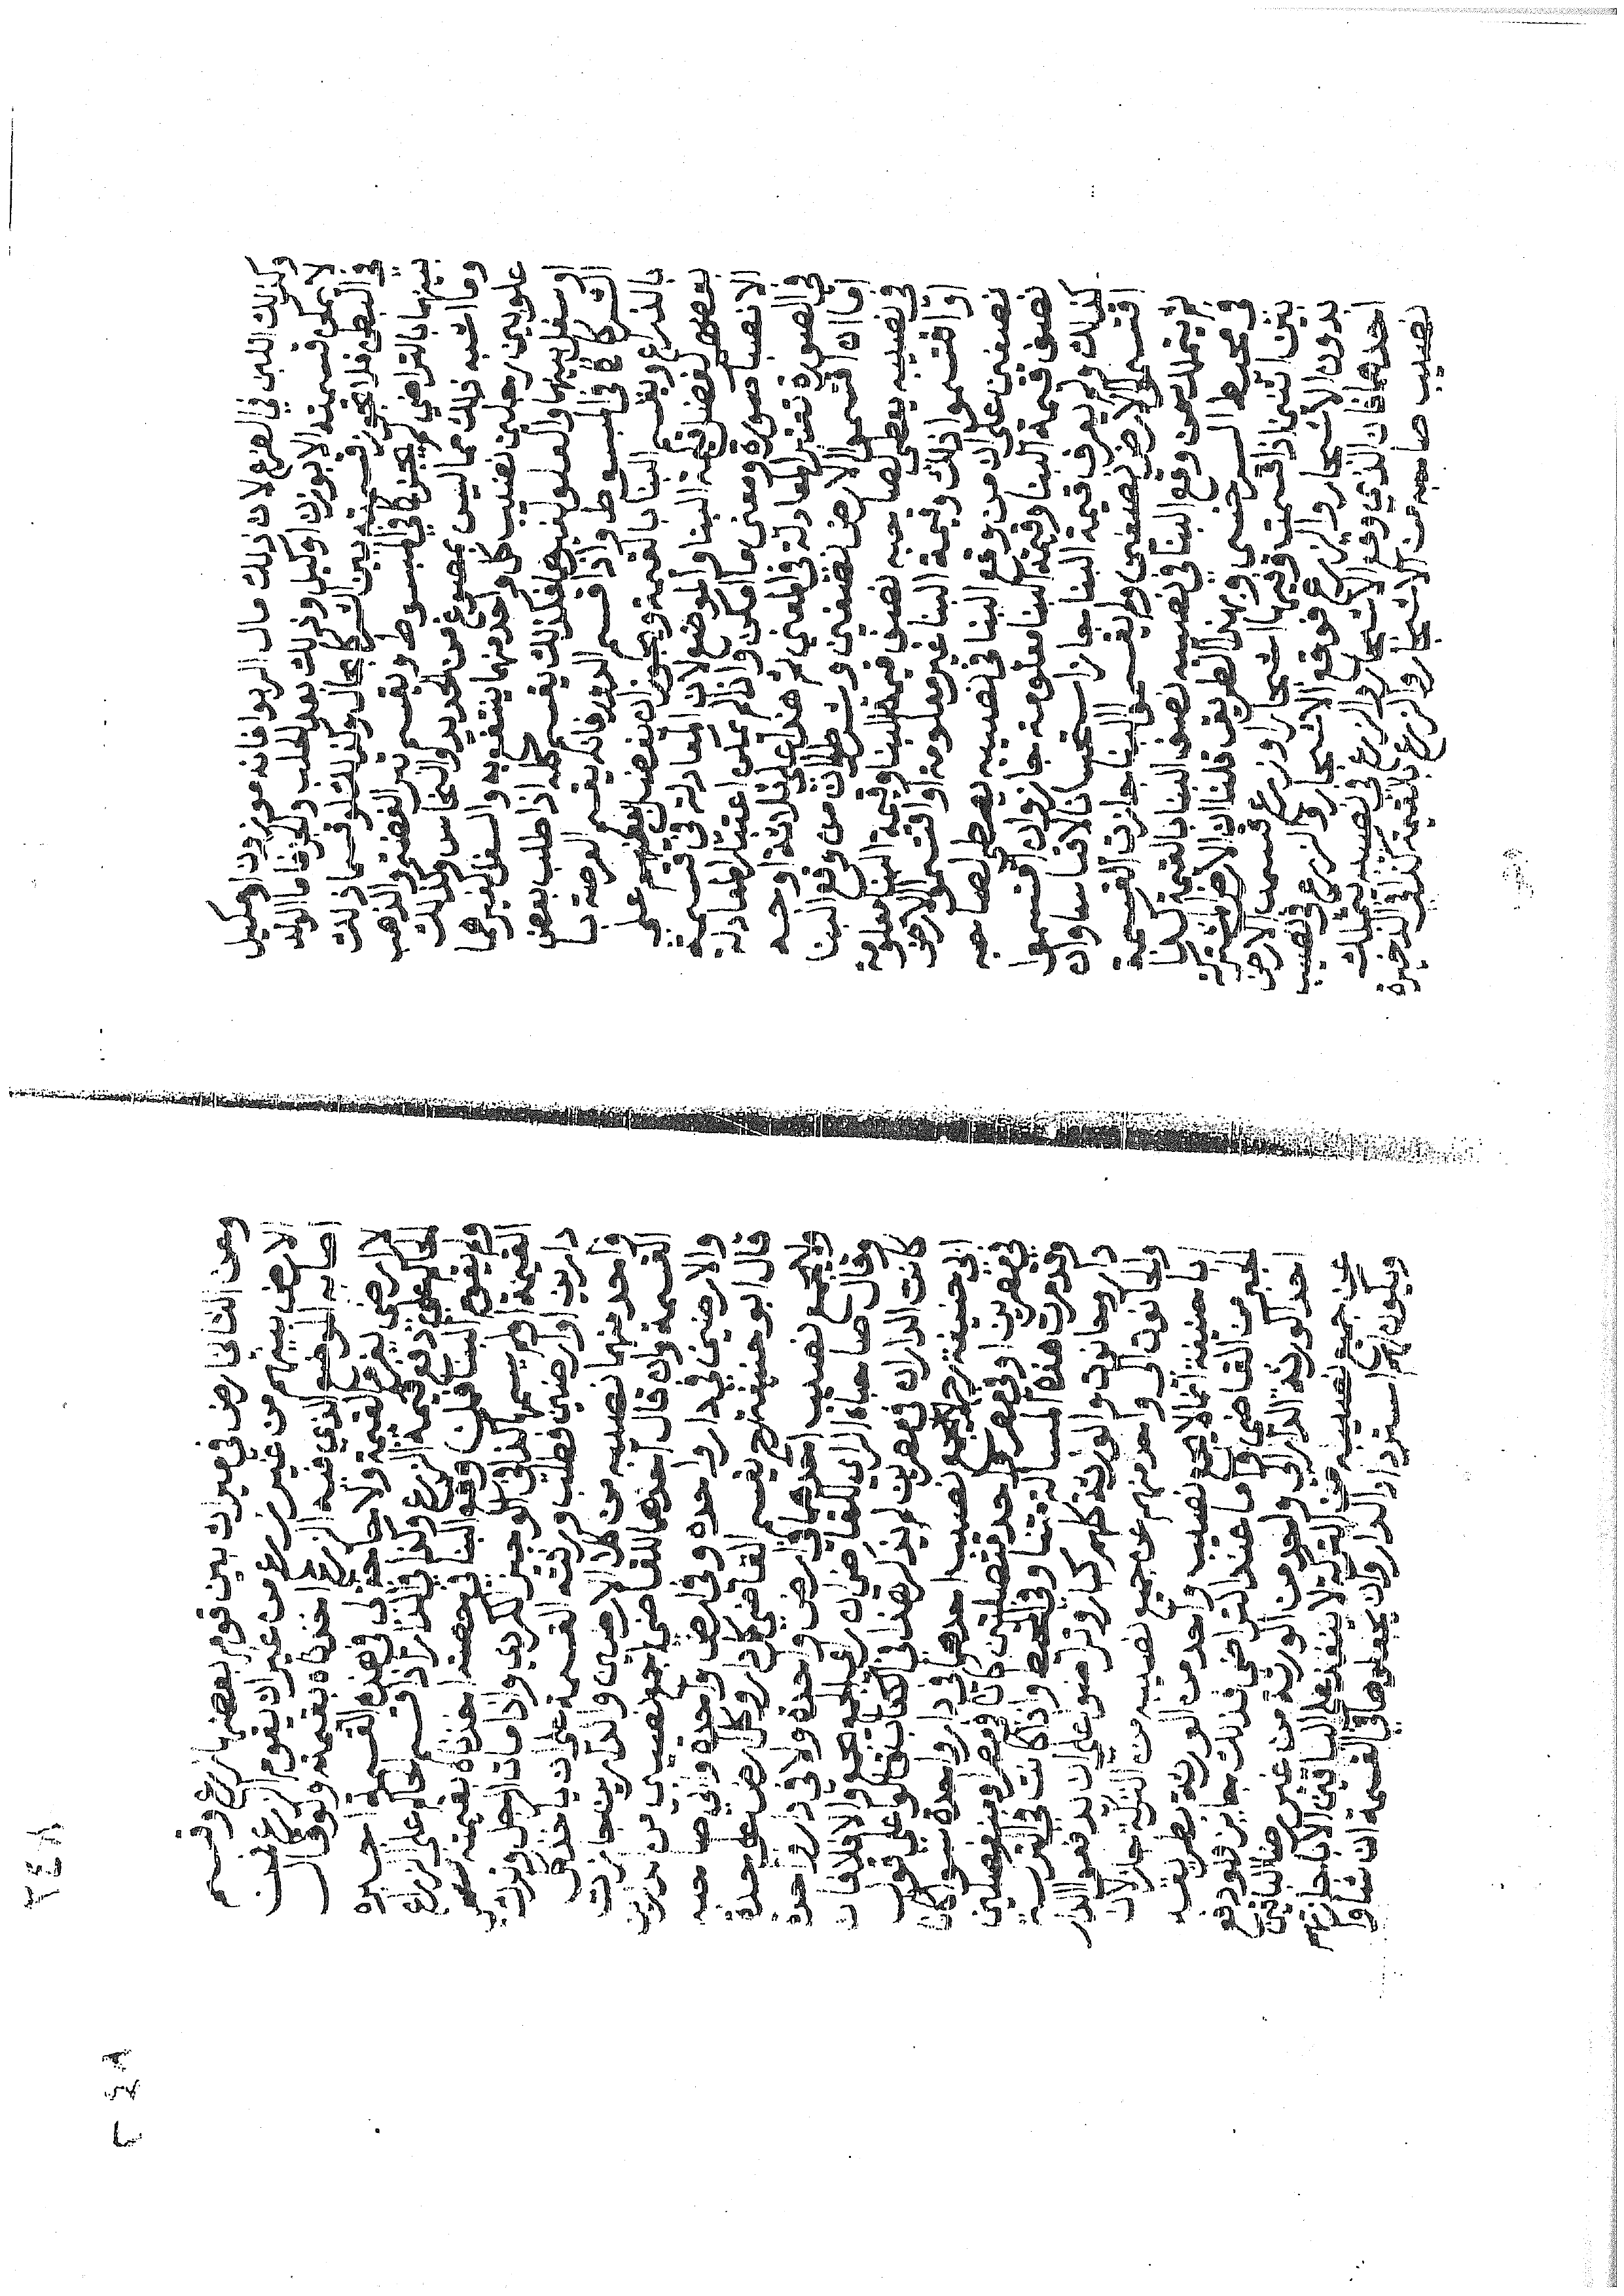 وكذلك اللبن في الضرع لان ذلك مال الربوا فانه موزون او مكيل
لا يمكن قسمته الا بوزن او كيل وذلك بعد الحلب والجز فاما الولد
في البطن فلا تجوز قسمته بين الشركا بحال وكذلك لو قسما ذلك
بينهما بالتراضي لم يجز كذا في المبسوط ويقسم تبر الفضة والذهب
وما اشبه ذلك مما ليس بمصوغ من الحديد والنحاس وكذلك
علو بين رجلين نصيب كل واحد منهما ينتفع به والسفل لغيرهما
او سفل بينهما والعلو لغيرهما فكذلك يقسم كله اذا طلب بعض
الشركا كذا في المبسوط واذا قسم الدور فانه يقسم العرصة با
بالذراع ويقسم البنا بالقيمة ويجوز ان يفضل بعضهم على
بعض لفضل قيمة البنا والموضع لان المعادلة في قسمة
الانصبا صورة ومعنى ما امكن واذا لم يمكن اعتبار المعادلة
في الصورة تعتبر المعادلة في المعنى ثم هذا على ثلاثة اوجه
اما ان اقتسموا الارض نصفين وشرطا ان من وقع البنا
في نصيبه يعطي لصاحبه نصف قيمة البنا وقيمة البنا معلومة
او اقتسموا كذلك وقيمة البنا غير معلومة او اقتسموا الارض
نصفين على ان من وقع البنا في نصيبه يعطي لصاحبه
نصف قيمة البنا وقيمة البنا معلومة جاز وان اقتسموا
كذلك ولم يعرف قيمة البنا جاز استحسانا لا قياسا وان
اقتسموا الارض نصفين ولم يقسموا البنا جازت القسمة
ثم يتملك من وقع البنا في نصيبه نصف البنا بالقيمة كذا
في محيط السرخسي وبهذا الطريق قلنا ان الارض المشتركة
بين اثنين اذا قسمت وفيها اشجار او زرع قسمت الارض
بدون الاشجار والزرع فوقع الاشجار والزرع في نصيب
احدهما فان الذي وقع الاشجار والزرع في نصيبه يتملك
نصيب صاحبه من الاشجار والزرع بالقيمة كذا في الذخيرة
وعن الثاني ارض في ميراث بين قوم بعضها زرع وقسم
الارض بينهم من غير زرع من غير ان يقوم الزرع فمن
اصابه الموضع الذي فيه الزرع اخذناه بقيمته ولو قال
لا ارضى بغرم القيمة ولا حاجة لي في هذه القسمة اجبره
الحاكم على دفع قيمة الزرع وكذا في الدار اذا قسم الحاكم على الذراع
ولم يقوم البنا فمن وقع البنا في حصته اخذناه بقيمته سمى
القيمة او لم يسمها كذا في الوجيز للكردي واذا مات الرجل وترك
دارين او ارضين فطلب ورثته القسمة على ان ياخذ كل
واحد منهما نصيبه من كلا الارضين والدارين جازت
القسمة وان قال احدهما للقاضي اجمع نصيبي من الدارين
والارضين في دار واحدة وفي ارض واحدة وابى صاحبه
قال ابو حنيفة رح يقسم القاضي كل دار وكل ارض على حدة
ولا يجمع نصيب احدهما في ارض واحدة ولا في دار واحدة
وقال صاحباه الراي للقاضي ان راى الجمع يجمع والا فلا فان
كانت الداران في مصرين لم يذكر هذا في الكتاب قالوا على قول
ابي حنيفة رح لا يجمع نصيب احدهما في دار واحدة سوا كانا
في مصرين او في مصر واحد متصلتين كانتا في مصر او منفصلتين
وقد مرت هذه المسالة واذا كانت في التركة
دار وحانوت والورثة كلهم كبار وتراضوا على ان يدفعوا الدار
والحانوت الى واحد منهم عن جميع نصيبه من التركة جاز لان
ابا حنيفة انما لا يجمع نصيب واحد من الورثة بطريق
الجبر من القاضي واما عند التراضي فذلك جايز ولو دفع
احد الورثة الدار الى واحد من الورثة من غير رضا الباقين
عن جميع نصيبه من التركة لا ينفذ على الباقين الا باجازتهم
ويكون لهم استرداد الدار وان يجعلوها في القسمة ان شاوا
٢٤٨
٢٤٨